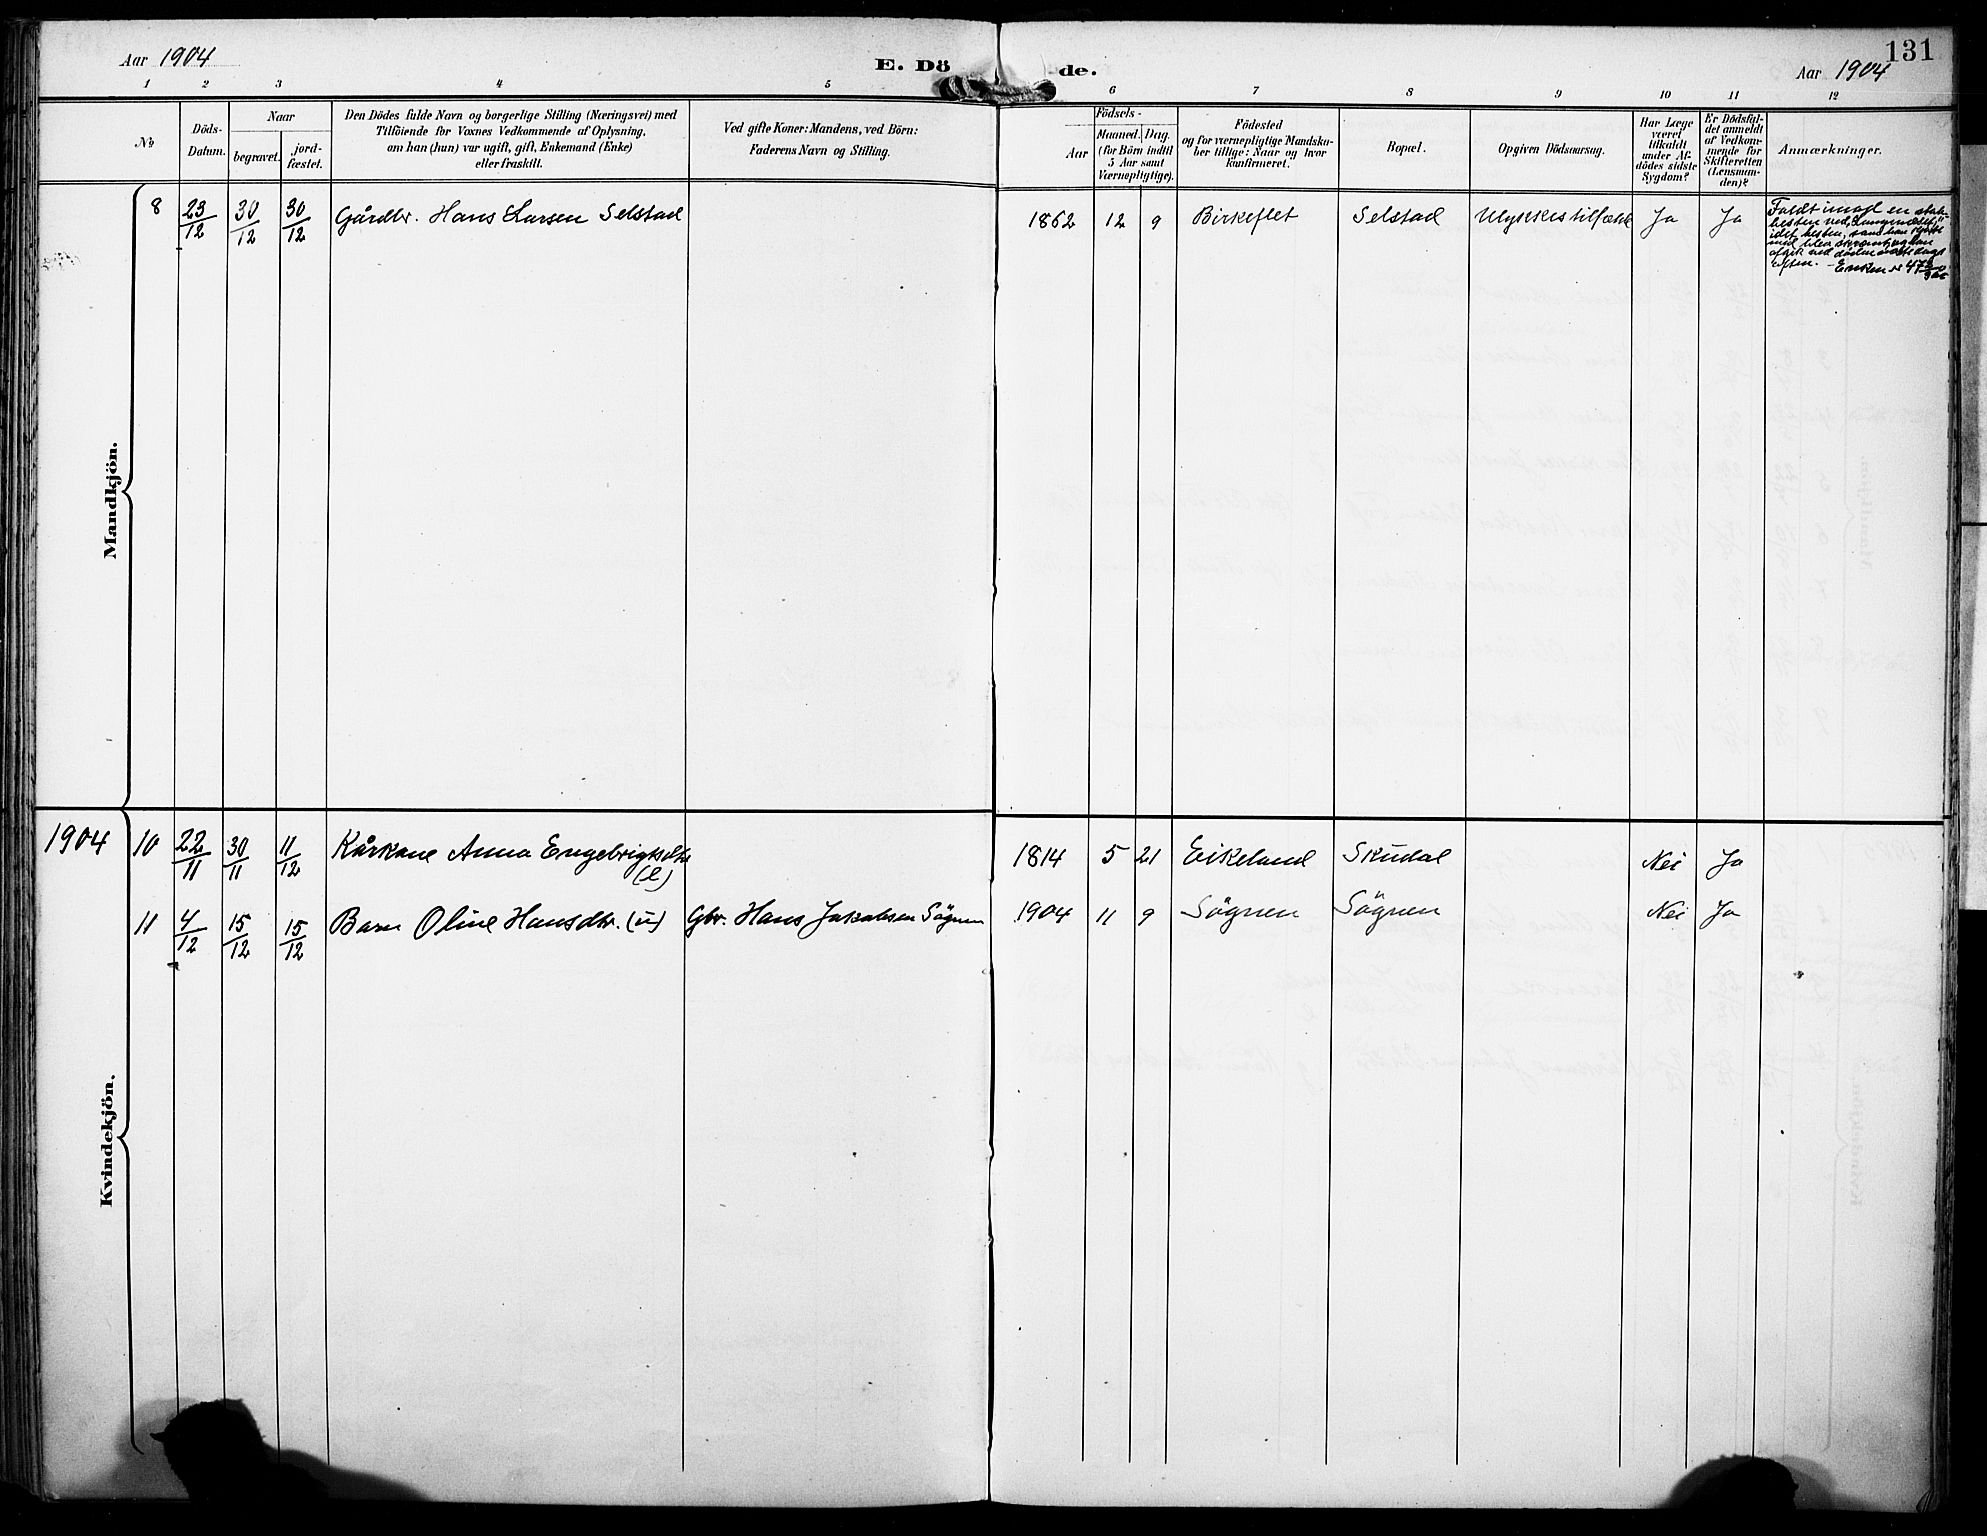 Aar 1904
E. Dö
de.
131
Aar 1904
1 2 3 4 5 6 7 8 9 10 11 12
№
Döds-
Datum.
Naar
begravet.
jord-
fæstet.
Den Dödes fulde Navn og borgerlige Stilling (Næringsvei) med
Tilföiende for Voxnes Vedkommende af Oplysning,
om han (hun) var ugift, gift, Enkemand (Enke)
eller fraskilt.
Ved gifte Koner: Mandens, ved Börn:
Faderens Navn og Stilling.
Födsels-
Aar
Maaned. Dag.
(for Börn indtil
5 Aar samt
Værnepligtige).
Födested
og for værnepligtige Mandska-
ber tillige: Naar og hvor
konfirmeret.
Bopæl.
Opgiven Dödsaarsag.
Har Læge
været
tilkaldt
under Af-
dödes sidste
Sygdom?
Er Dödsfal-
det anmeldt
af Vedkom-
mende for
Skifteretten
(Lensman-
den)?
Anmærkninger.
Mandkjön.
8 23/12 30/12 30/12 Gårdbr. Hans Larsen Selstad 1862 12 9 Birkeflet Selstad Ulykkestilfælde Ja Ja
Faldt imod en
hesten ved
idet hesten, som han kjørte
med blev skræmt og han
afgik ved døden
aften. – Enken
Kvindekjön.
1904 10 22/11 30/11 11/12 Kårkone Anna Engebrigtsdtr 1814 5 21 Eikeland Skudal Nei Ja
(e)
11 4/12 15/12 15/12 Barn Oline Hansdtr. (u) Gbr. Hans Jakobsen Sögnen 1904 11 9 Sögnen Sögnen Nei Ja